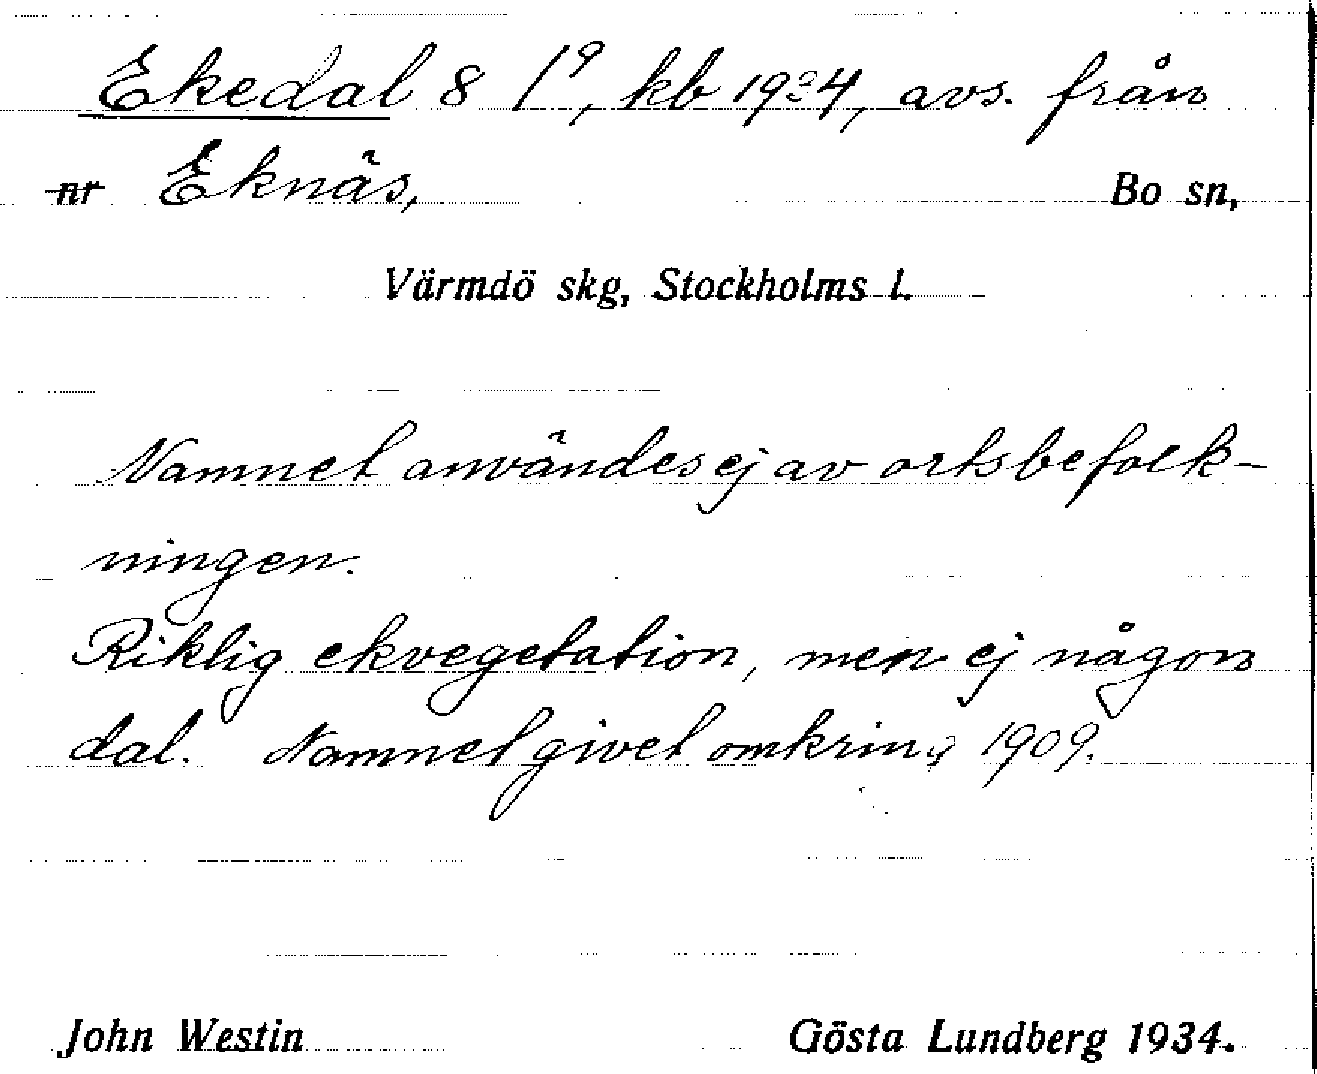 Ekedal 8 /9, kb 1934, avs. från
nr Eknäs, Bo sn,
Värmdö skg, Stockholms l.
Namnet användes ej av ortsbefolk-
ningen.
Riklig ekvegetation, men ej någon
dal. Namnet givet omkring 1909.
John Westin Gösta Lundberg 1934.